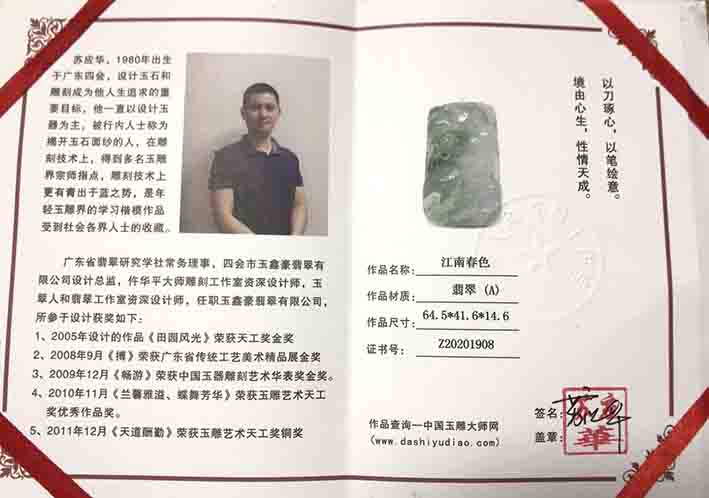 苏应华，1980年出生
于广东四会，设计玉石和
雕刻成为他人生追求的重
要目标，他一直以设计玉
器为主，被行内人士称为
揭开玉石面纱的人，在雕
刻技术上，得到多名玉雕
界宗师指点，雕刻技术上
更有青出于蓝之势，是年
轻玉雕界的学习楷模作品
受到社会各界人士的收藏。
广东省翡翠研究学社常务理事，四会市玉鑫豪翡翠有
限公司设计总监，仵华平大师雕刻工作室资深设计师，玉
翠人和翡翠工作室资深设计师，任职玉鑫豪翡翠有限公司，
所参于设计获奖如下：
1、2005年设计的作品《田园风光》荣获天工奖金奖
2、2008年9月《搏》荣获广东省传统工艺美术精品展金奖
3、2009年12月《畅游》荣获中国玉器雕刻艺术华表奖金奖。
4、2010年11月《兰馨雅溢、蝶舞芳华》荣获玉雕艺术天工
奖优秀作品奖。
5、2011年12月《天道酬勤》荣获玉雕艺术天工奖铜奖
以刀琢心，以笔绘意。
境由心生，性情天成。
作品名称： 江南春色
作品材质： 翡翠（A）
作品尺寸： 64.5*41.6*14.6
证书号： Z20201908
作品查询一中国玉雕大师网
(www.dashiyudiao.com)
签名：
盖章：